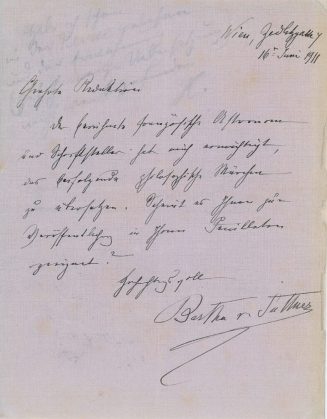 Wien, Zedlitzgasse 7
16t Juni 1911
Geehrte Redaktion!
Der berühmte französische Astronom
und Schriftsteller hat mich ermächtigt,
das beifolgende philosophische Märchen
zu übersetzen. Scheint es Ihnen zur
Veröffentlichung in Ihrem Feuilleton
geeignet?
Hochachtungsvoll
Bertha v. Suttner